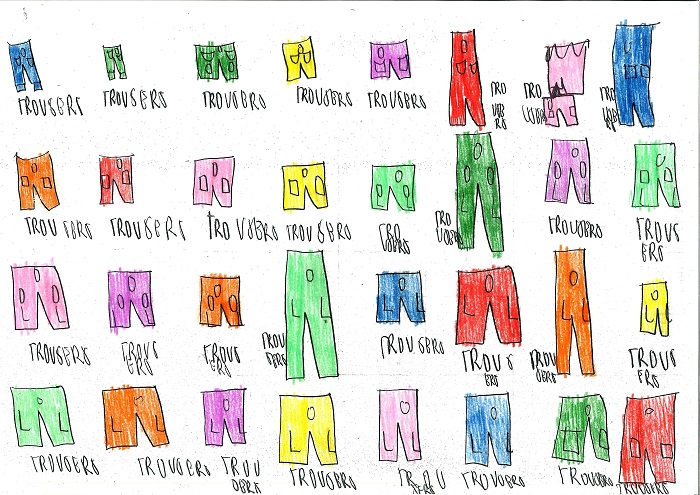 TROUSERS
TROUSERS
TROUSERS
TROUSERS
TROUSERS
TRO
USE
RS
TRO
USERS
TRO
USE
RS
TROUSERS
TROUSERS
TROUSERS
TROUSERS
TRO
USERS
TRO
USERS
TROUSERS
TROUS
ERS
TROUSERS
TROUS
ERS
TROUS
ERS
TROU
SERS
TROUSERS
TROUS
ERS
TROU
SERS
TROUS
ERS
TROUSERS
TROUSERS
TROU
SERS
TROUSERS
TROU
SERS
TROUSERS
TROUSERS
TROUSERS